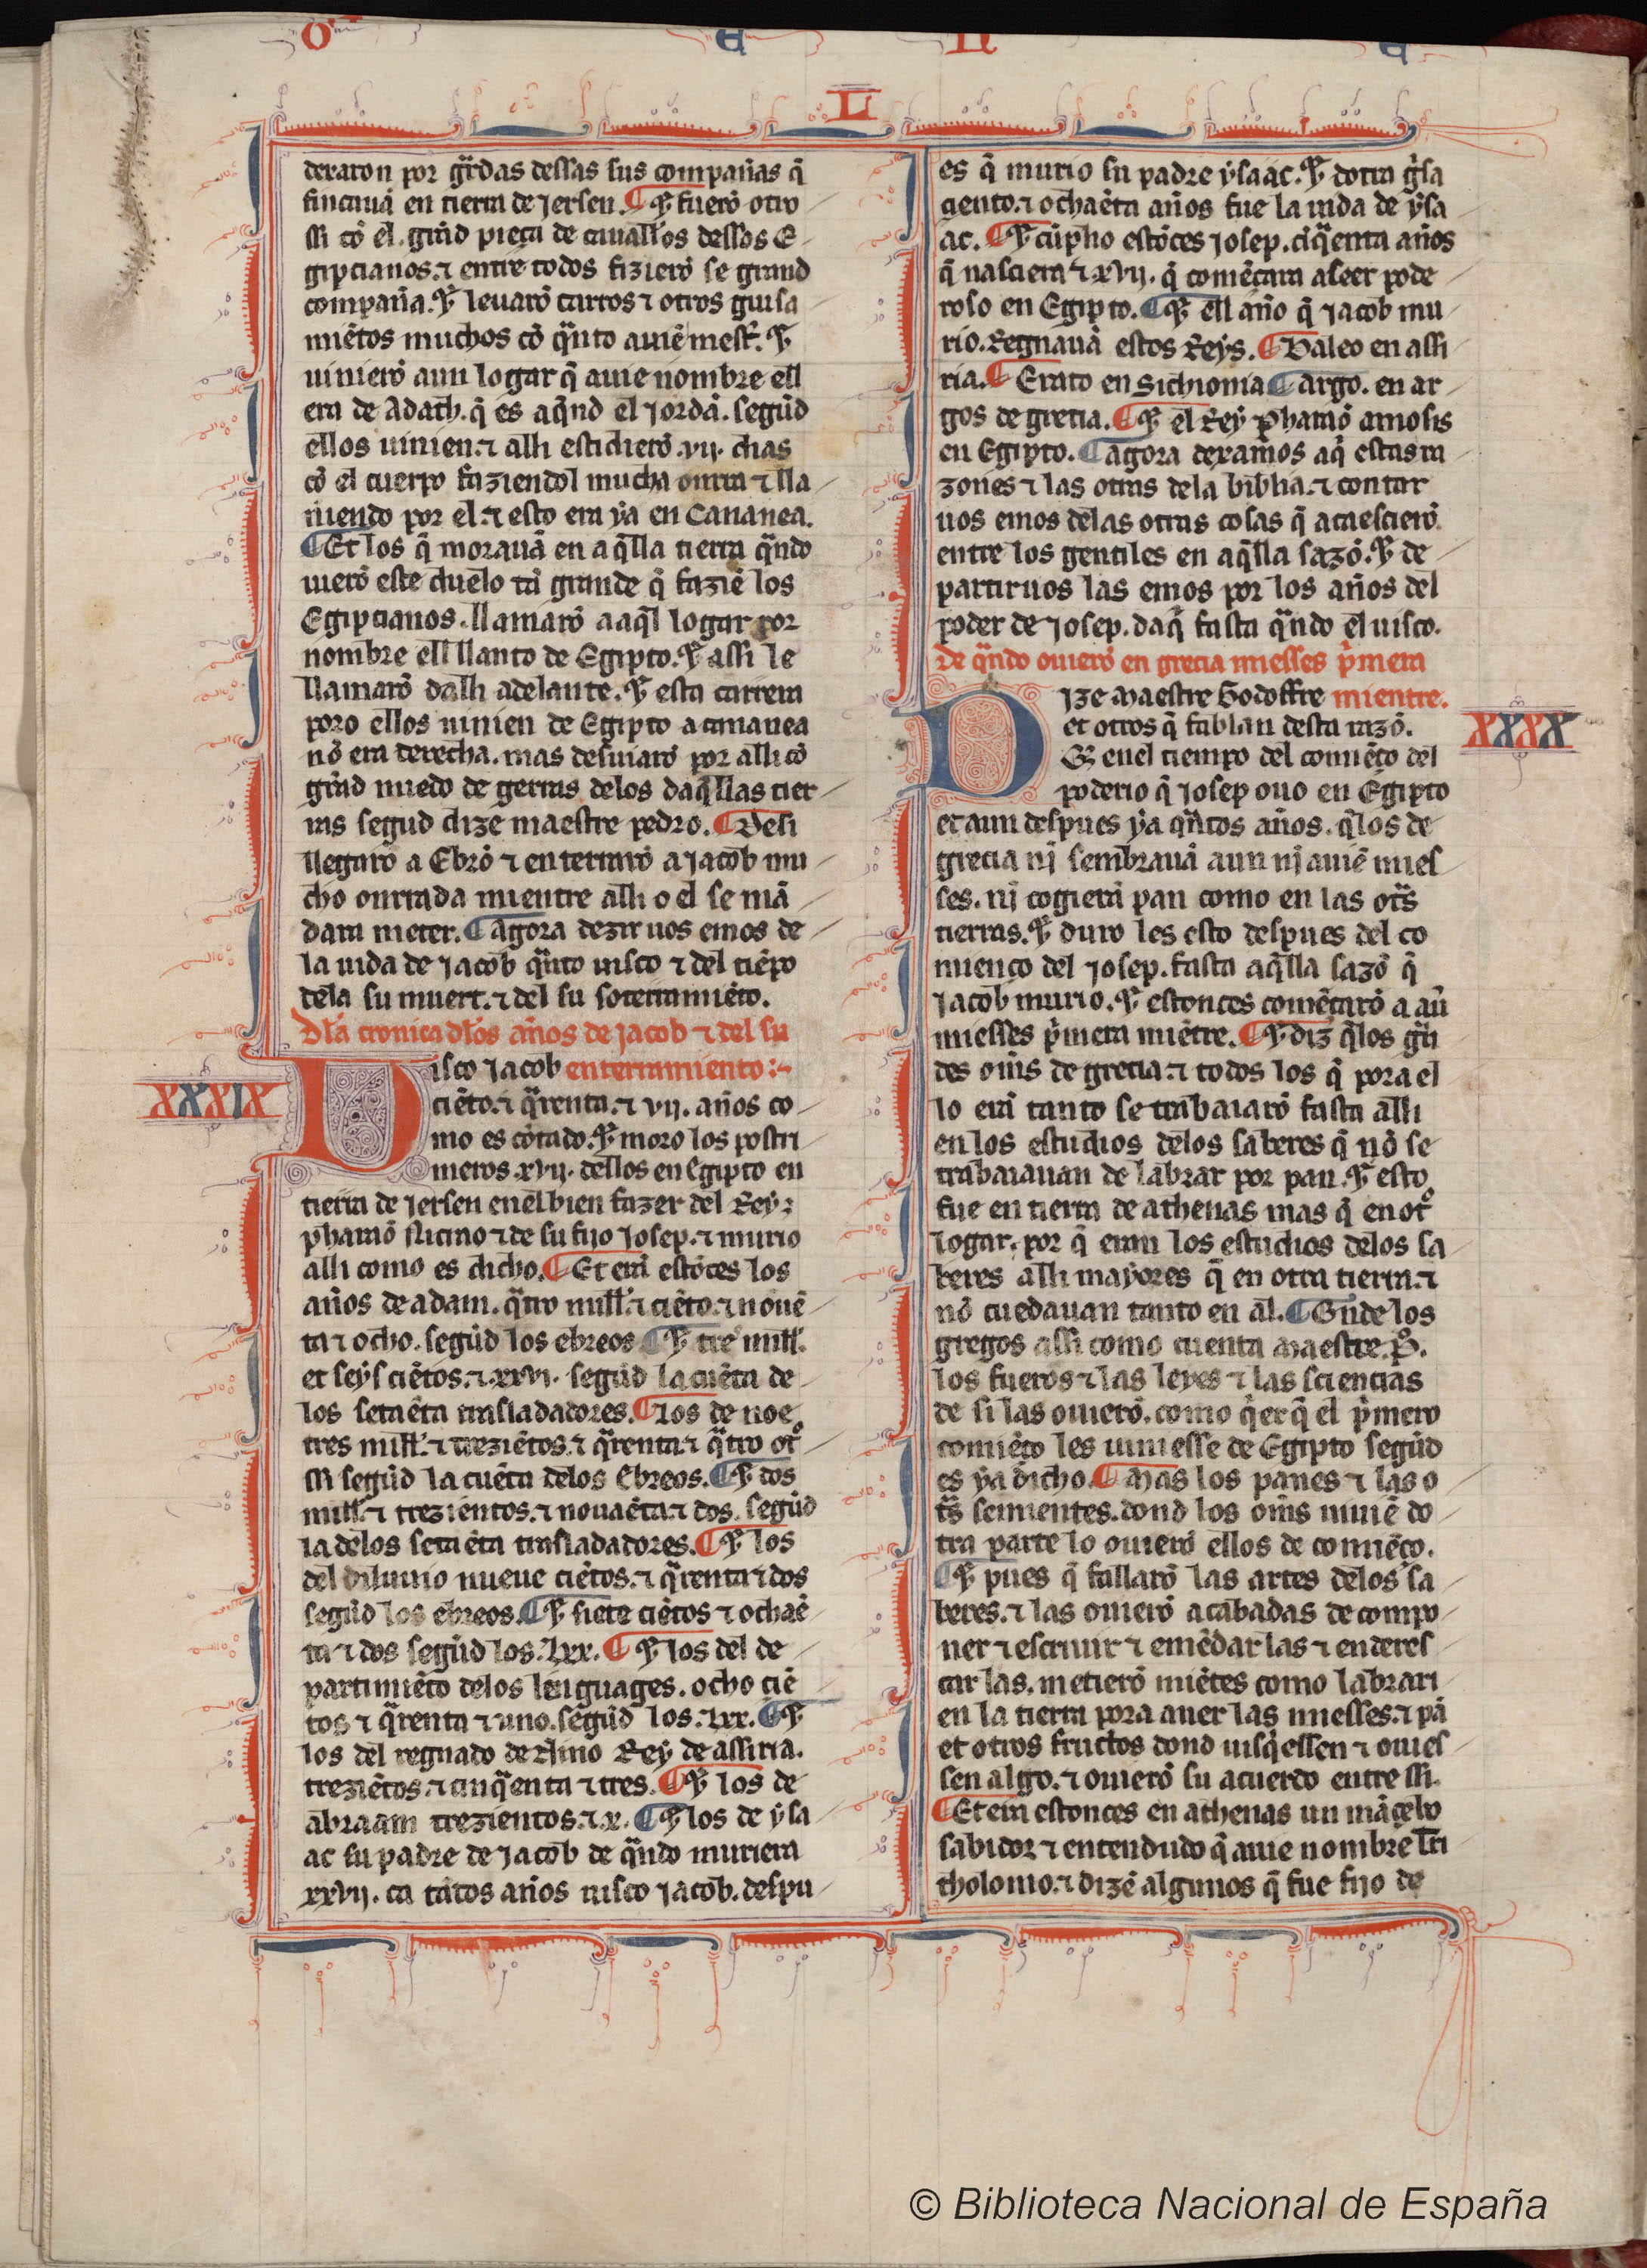 O E N E
L
dexaron por gͣrdas dessas sus compañas q̃
fincauã en tierra de Jersen. ¶ ⁊ fuerõ otro
ssi cõ el. grãd pieça de cauallos dessos E
gipcianos. ⁊ entre todos fizierõ se grand
compaña. ⁊ leuarõ carros ⁊ otros guisa
miẽtos muchos cõ qͣnto auiẽ mest̃. ⁊
uinierõ a un logar q̃ auie nombre ell
era de Adath. q̃ es aq̃nd el Jordã. segũd
ellos uinien. ⁊ alli estidierõ .vij. dias
cõ el cuerpo faziendol mucha onrra ⁊ lla
ñiendo por el. ⁊ esto era ya en Cananea.
¶ Et los q̃ morauã en aq̃lla tierra qͣndo
uierõ este duelo tã grande q̃ faziẽ los
Egipcianos. llamarõ a aq̃l logar por
nombre ell llanto de Egipto. ⁊ assi le
llamarõ dalli adelante. ⁊ esta carrera
poro ellos uinien de Egipto a canaanea
nõ era derecha. mas desuiarõ por alli cõ
grãd miedo de gerras delos daq̃llas tier
ras segud dize maestre pedro. ¶ Desi
llegarõ a Ebrõ ⁊ enterrarõ a Jacob mu
cho onrrada mientre alli o el se mã
dara meter. ¶ Agora dezir uos emos de
la uida de Jacob qͣnto uisco ⁊ del tiẽpo
dela su muert. ⁊ del su soterramiẽto.
Dl̃a cronica dl̃os años de Jacob ⁊ del su
XXXIX
Uisco Jacob enterramiento:
ciẽto. ⁊ qͣrenta. ⁊ vij. años co
mo es cõtado. ⁊ moro los postri
meros .xvij. dellos en Egipto en
tierra de Jersen enel bien fazer del Rey
pharaõ Nicrao ⁊ de su fijo Josep. ⁊ murio
alli como es dicho. ¶ Et erã estõces los
años de adam. qͣtro mill. ⁊ ciẽto. ⁊ nouẽ
ta ⁊ ocho. segũd los ebreos ¶ ⁊ tre mill.
et seys ciẽtos. ⁊ .xxvi. segũd la cuẽta de
los setaẽta trasladadores. ¶ Los de noe
tres mill. ⁊ treziẽtos. ⁊ qͣrenta ⁊ qͣtro ot͛
ssi segũd la cuẽta delos Ebreos. ¶ ⁊ dos
mill. ⁊ trezientos. ⁊ nouaẽta ⁊ dos. segũd
la delos setaẽta trasladadores. ¶ ⁊ los
del diluuio nueue ciẽtos. ⁊ qͣrenta ⁊ dos
segũd los ebreos. ¶ ⁊ siete ciẽtos ⁊ ochaẽ
ta ⁊ dos segũd los. Lxx. ¶ ⁊ los del de
partimiẽto delos lenguages. ocho ciẽ
tos ⁊ qͣrenta ⁊ uno. segũd los. Lxx. ¶ ⁊
los del regnado de Nino Rey de assiria.
treziẽtos. ⁊ cinq̃enta ⁊ tres. ¶ ⁊ los de
abraam trezientos. ⁊ .x. ¶ ⁊ los de ysa
ac su padre de Jacob de qͣndo muriera
xxvij. ca tãtos años uisco Jacob. despu
es q̃ murio su padre ysaac. ⁊ dotra gͥsa
aento. ⁊ ochaẽta años fue la uida de ysa
ac. ¶ ⁊ cũpho estõces Josep. ciq̃enta años
q̃ nasciera ⁊ xvij. q̃ comẽçara a seer pode
roso en Egipto. ¶ ⁊ ell año q̃ Jacob mu
rio. Regnauã estos Reys. ¶ Baleo en assi
ria. ¶ Erato en Sichionia ¶ Argo. en ar
gos de grecia. ¶ ⁊ el Rey Pharaõ amosis
en Egipto. ¶ agora dexamos aq̃ estas ra
zones ⁊ las otras dela biblia. ⁊ contar
uos emos delas otras cosas q̃ acaescierõ
entre los gentiles en aq̃lla sazõ. ⁊ de
partir uos las emos por los años del
poder de Josep. daq̃ fasta qͣndo el uisco.
De qͣndo ouierõ en grecia miesses pͥmera
XXXX
Dize Maestre Godoffre mientre.
et otros q̃ fablan desta razõ.
Q̃ enel tiempo del comiẽço del
poderio q̃ Josep ouo en Egipto
et aun despues ya qͣntos años. q̃los de
grecia nj̃ sembrauã aun nj̃ auiẽ mies
ses. nj̃ cogierã pan como en las ot̃s
tierras. ⁊ duro les esto despues del co
mienço del Josep. fasta aq̃lla sazõ q̃
Jacob murio. ⁊ estonces comẽçarõ a aũ
miesses pͥmera miẽtre. ¶ ⁊ diz q̃los grã
des om̃s de grecia. ⁊ todos los q̃ pora el
lo erã tanto se trabaiarõ fasta alli
en los estudios delos saberes q̃ nõ se
trabaiauan de labrar por pan. ⁊ esto
fue en tierra de athenas mas q̃ en ot͛
logar. por q̃ eran los estudios delos sa
beres alli mayores q̃ en otra tierra. ⁊
nõ cuedauan tanto en al. ¶ Onde los
gregos assi como cuenta Maestre. P̃.
los fueros ⁊ las leyes ⁊ las sciencias
de si las ouierõ. como q̃er q̃ el pͥmero
comiẽço les uiniesse de Egipto segũd
es ya dicho. ¶ Mas los panes ⁊ las o
t̃s semientes. dond los om̃s uiuiẽ do
tra parte lo ouierõ ellos de comiẽço.
¶ ⁊ pues q̃ fallarõ las artes delos sa
beres. ⁊ las ouierõ acabadas de compo
ner ⁊ escriuir ⁊ emẽdar las ⁊ enderes
çar las. metierõ miẽtes como labrari
en la tierra pora auer las miesses. ⁊ pã
et otros fructos dond uisq̃essen ⁊ ouies
sen algo. ⁊ ouierõ su acuerdo entre ssi.
¶ Et era estonces en athenas un mãçebo
sabidor ⁊ entendudo q̃ auie nombre Tri
tholomo. ⁊ dizẽ algunos q̃ fue fijo de
© Biblioteca Nacional de España